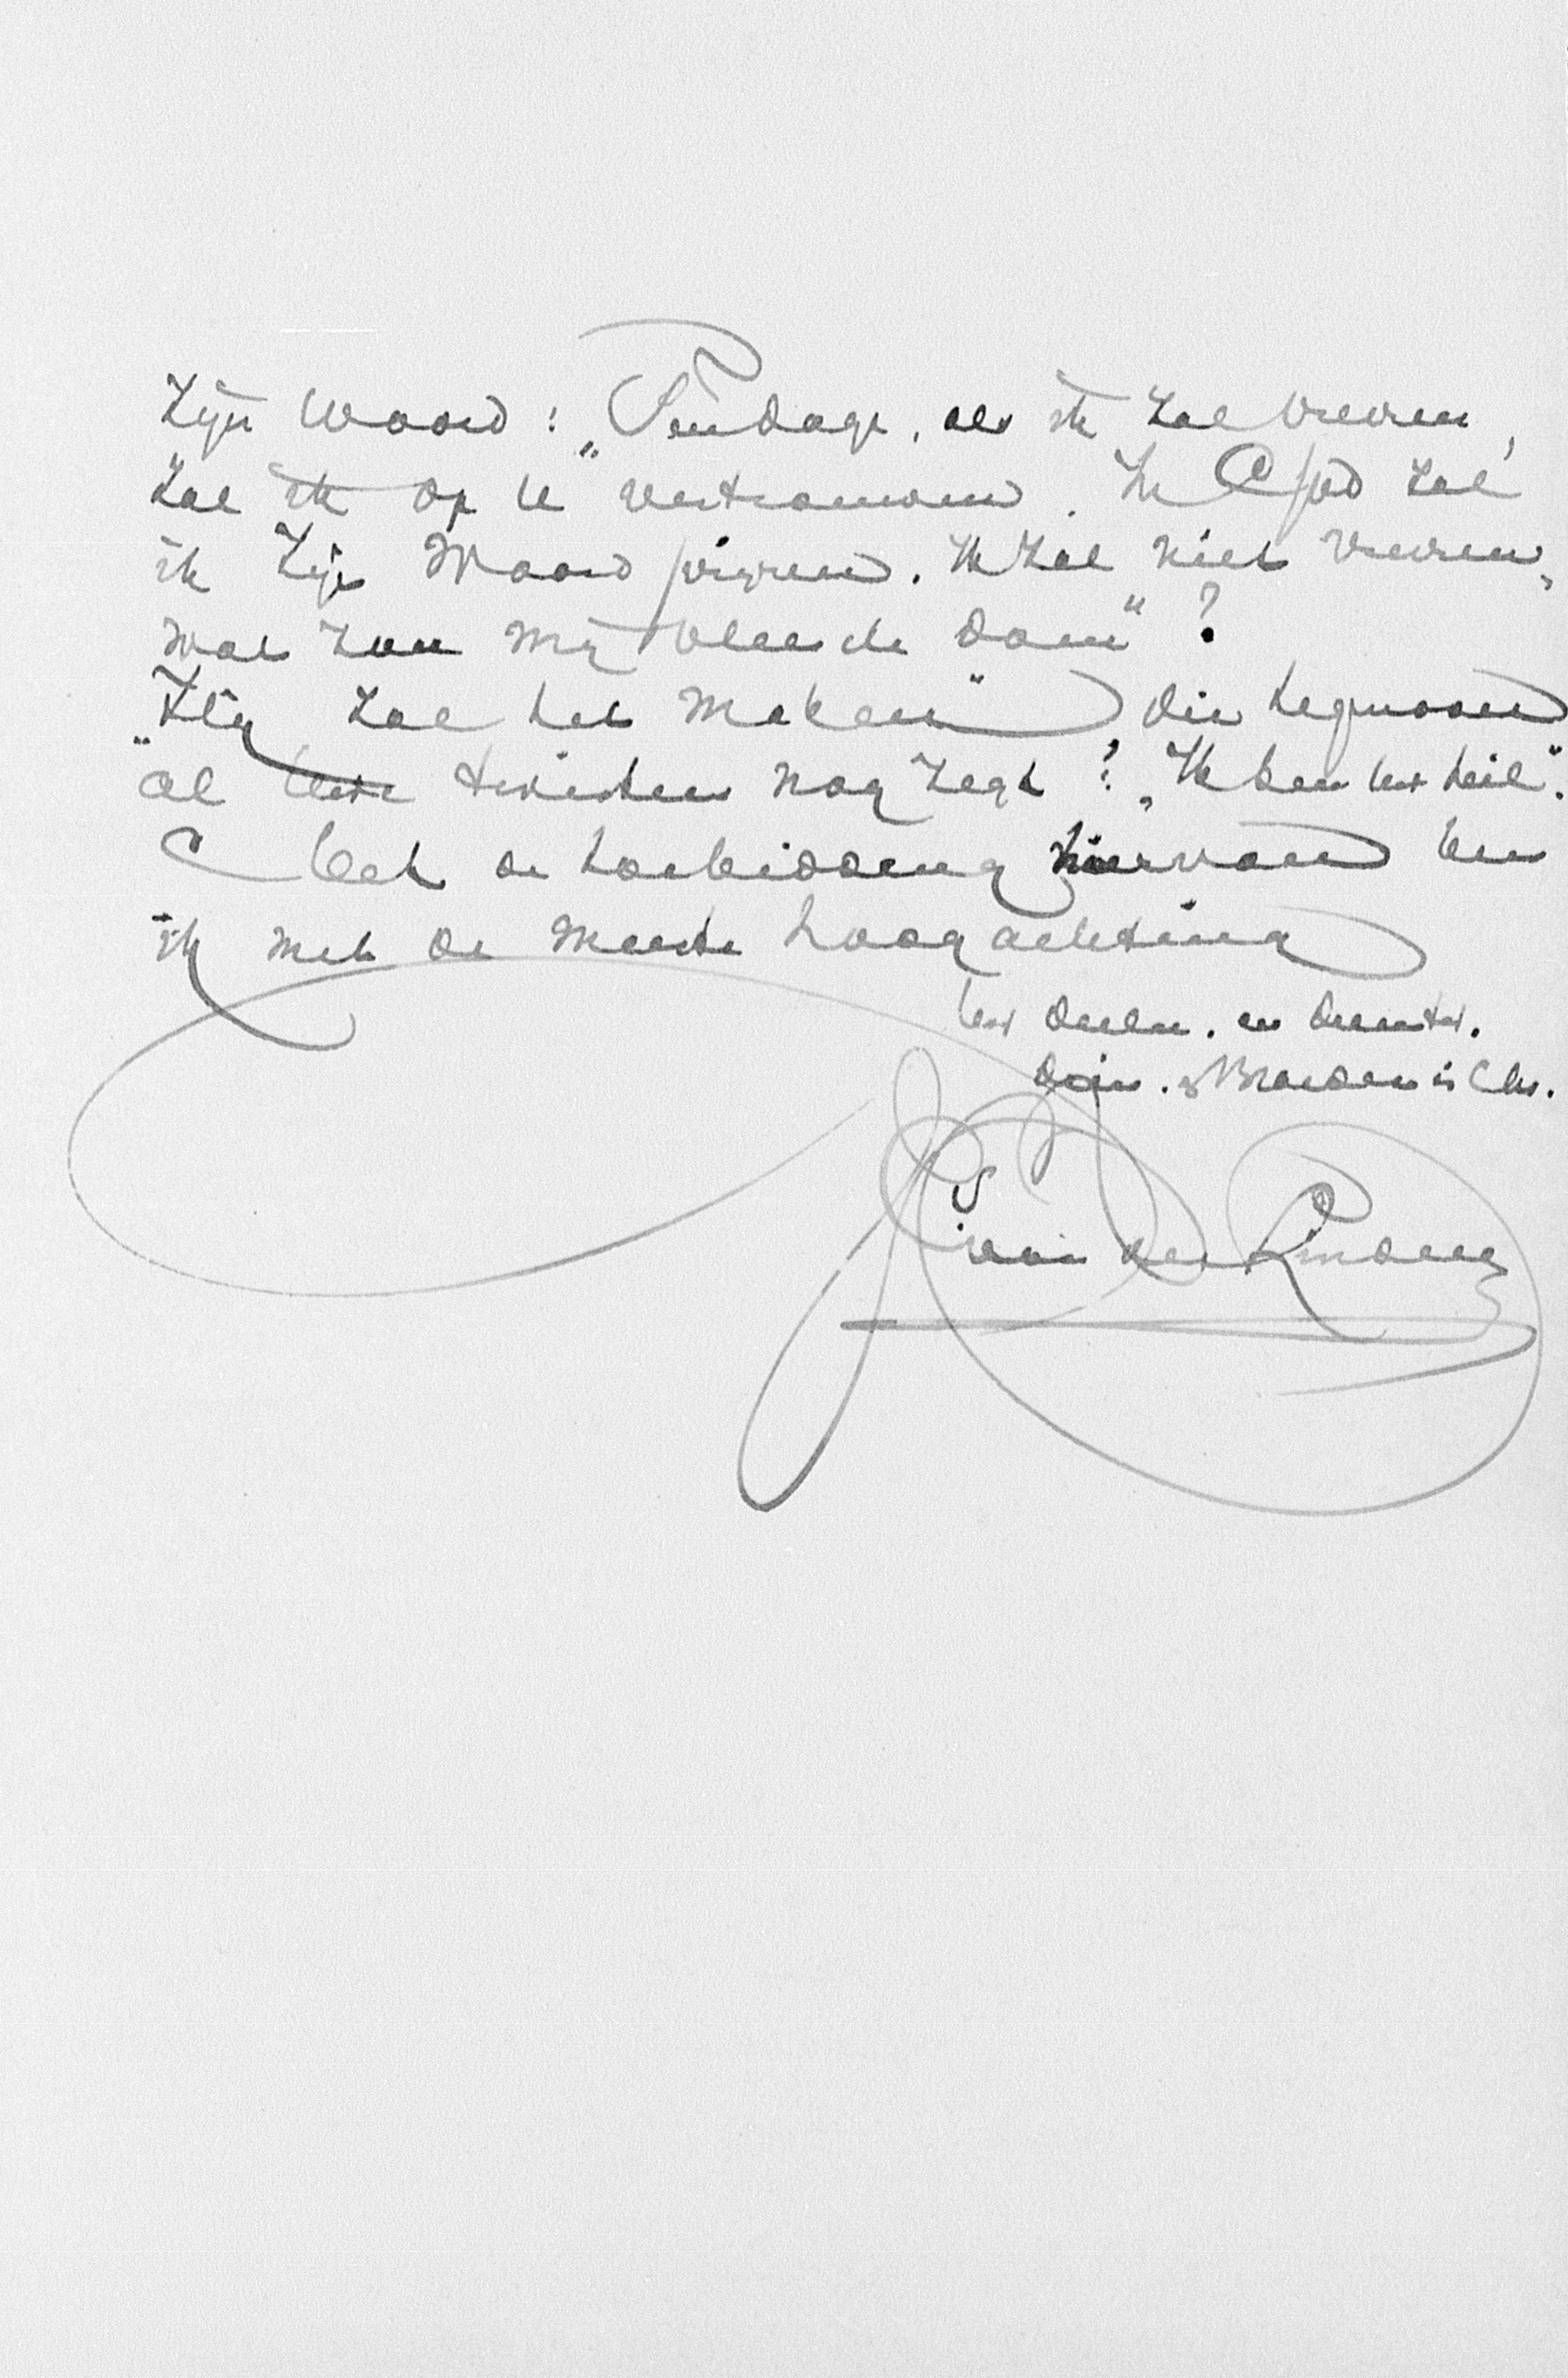 Zijn Woord: „Ten dage, als ik zal vreezen,
zal ik op U vertrouwen. In God zal
ik Zijn Woord prijzen. Ik zal niet vreezen,
wat zou mij vleesch doen"?
„Hij zal het maken", die tegenover
al Uwe twisten nog zegt: „Ik ben uw heil".
Met de toebidding hiervan ben
ik met de meeste hoogachting
Uw deeln. en
dien. & Broeder in Chr.
van der Linden